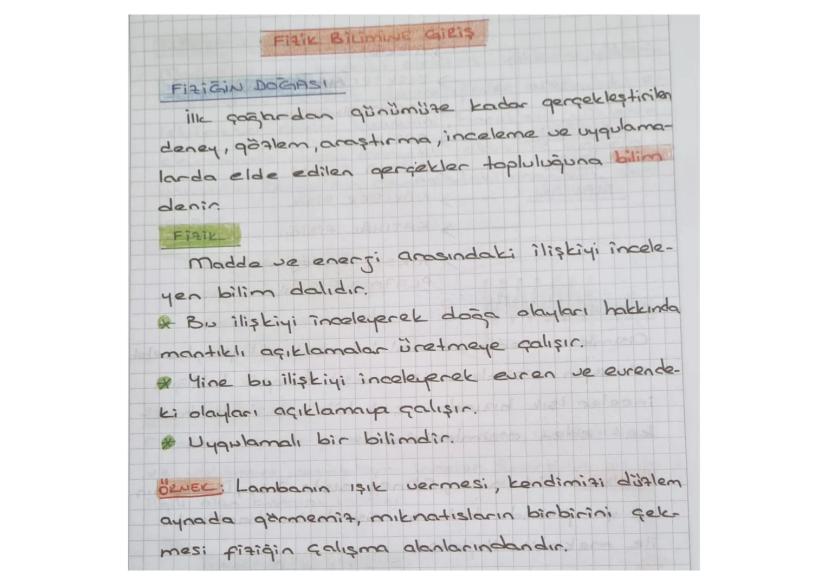 FİZİK BİLİMİNE GİRİŞ
FİZİĞİN DOĞASI
İlk çağlardan günümüze kadar gerçekleştirilen
deney, gözlem, araştırma, inceleme ve uygulama-
larda elde edilen gerçekler topluluğuna bilim
denir.
FİZİK
Madde ve enerji arasındaki ilişkiyi incele-
yen bilim dalıdır.
* Bu ilişkiyi inceleyerek doğa olayları hakkında
mantıklı açıklamalar üretmeye çalışır.
* Yine bu ilişkiyi inceleyerek evren ve evrende-
ki olayları açıklamaya çalışır.
* Uygulamalı bir bilimdir.
ÖRNEK: Lambanın ışık vermesi, kendimizi düzlem
aynada görmemiz, mıknatısların birbirini çek-
mesi fiziğin çalışma alanlarındandır.